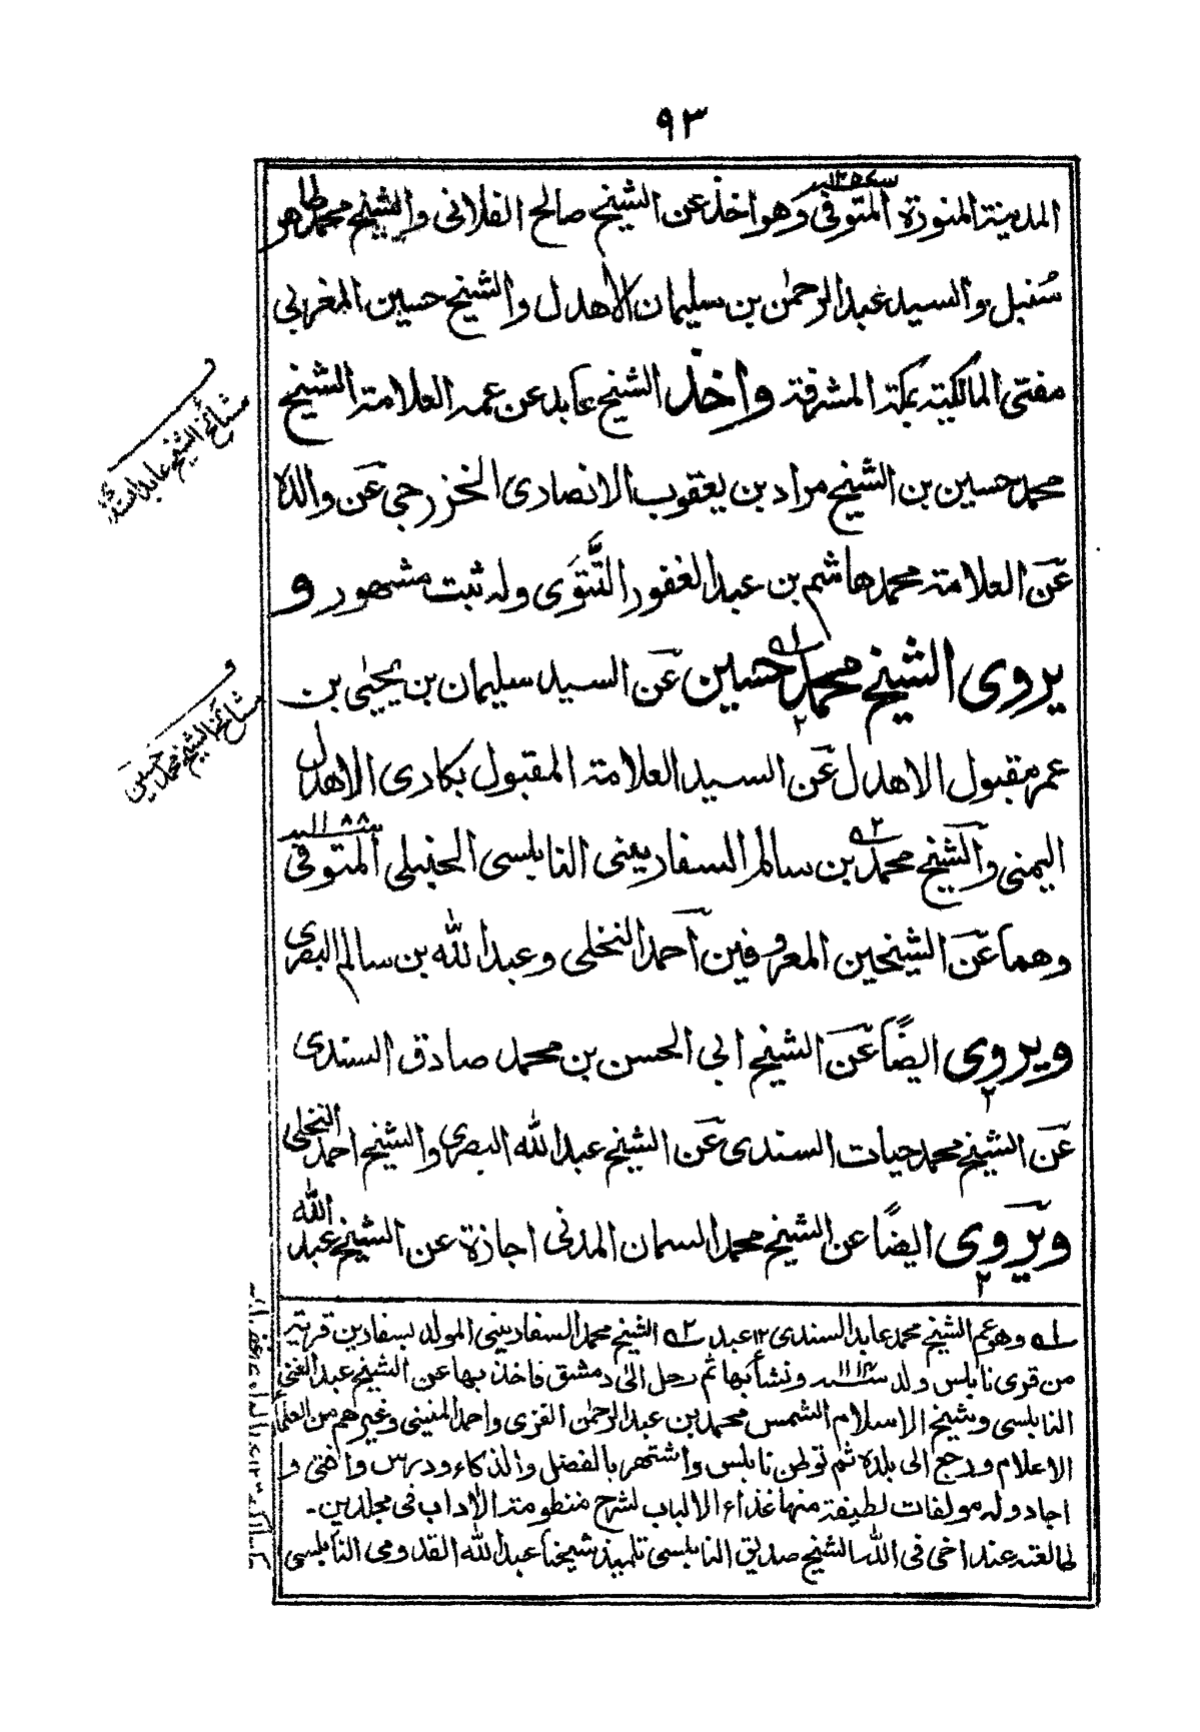 ٩٣
المدينة المنورة المتوفى سنة ١٢٥٧ وهو اخذ عن الشيخ صالح الفلانى والشيخ محمد طاهر
سُنبل والسيد عبد الرحمٰن بن سليمان الاهدل والشيخ حسين المغربى
مفتى المالكية بمكة المشرفة واخذ الشيخ عابد عن عمه العلامة الشيخ
محمد حسين بن الشيخ مراد بن يعقوب الانصارى الخزرجى عَن والده
عَن العلامة محمد هاشم بن عبد الغفور التَّتَوى وله ثبت مشهور و
يروى الشيخ محمد حسين ؎۱ عَن السيد سليمان بن يحيٰى بن
عمر مقبول الاهدل عَن السيد العلامة المقبول بكارى الاهدل
اليمنى والشيخ محمد ؎۲ بن سالم السفارينى النابلسى الحنبلى المتوفى سنة ١١٨٨
وهما عَن الشيخين المعروفين احمد النخلى وعبد الله بن سالم البصرى
ويروى ايضًا عَن الشيخ ابى الحسن بن محمد صادق السندى
عَن الشيخ محمد حيات السندى عَن الشيخ عبد الله البصرى والشيخ احمد النخلى
ويروى ايضًا عن الشيخ محمد السمان المدنى اجازة عن الشيخ عبد الله
مشائخ الشيخ عابد السندى
مشائخ الشيخ محمد حسين
؎۱ وهو عم الشيخ محمد عابد السندى ١٢ عبد ؎۲ الشيخ محمد السفارينى المولد بسفارين قرية
من قرى نابلس ولد سنة ١١١٤ ونشأ بها ثم رحل الى دمشق فاخذ بها عن الشيخ عبد الغنى
النابلسى وشيخ الاسلام الشمس محمد بن عبد الرحمٰن الغزى واحمد المنينى وغيرهم من العلماء
الاعلام ورجع الى بلده ثم توطن نابلس واشتهر بالفضل والذكاء ودرس وافتى و
اجاد وله مولفات لطيفة منها غذاء الالباب لشرح منظومة الاداب فى مجلدين۔
طالعته عند اخى فى الله الشيخ صديق النابلسى تلميذ شيخنا عبد الله القدومى النابلسى